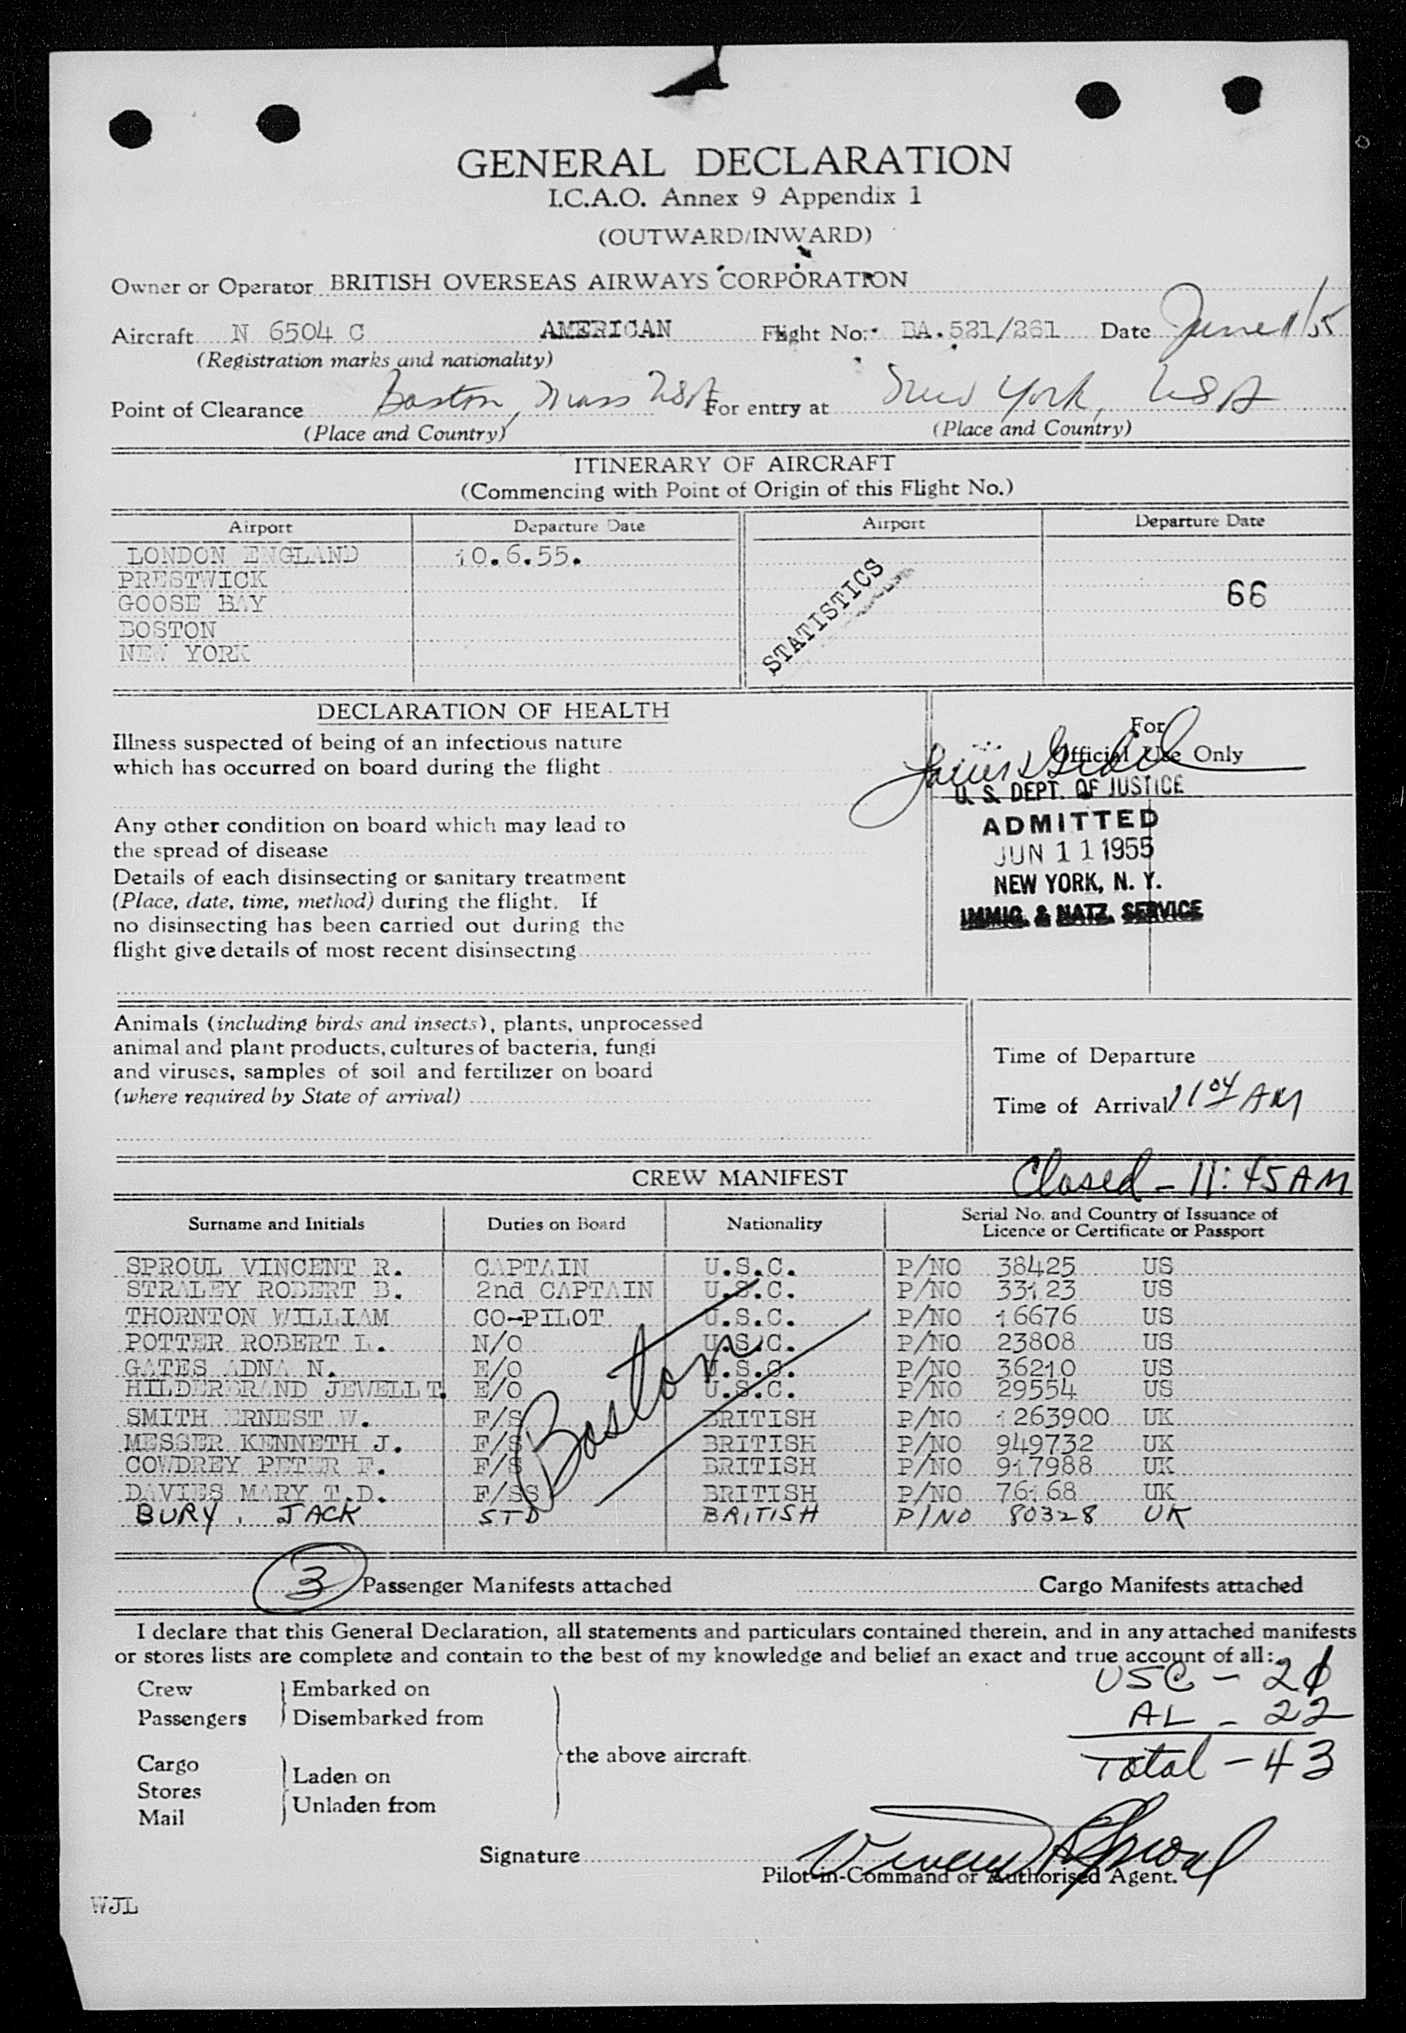 GENERAL DECLARATION
I.C.A.O. Annex 9 Appendix 1
(OUTWARD/INWARD)
Owner or Operator BRITISH OVERSEAS AIRWAYS CORPORATION
Aircraft N 6504 C AMERICAN Flight No. BA.521/261 Date June 11/55
(Registration marks and nationality)
Point of Clearance Boston, Mass USA For entry at New York, USA
(Place and Country) (Place and Country)
ITINERARY OF AIRCRAFT
(Commencing with Point of Origin of this Flight No.)
Airport Departure Date Airport Departure Date
LONDON ENGLAND 10.6.55.
PRESTWICK
GOOSE BAY 66
BOSTON STATISTICS
NEW YORK
DECLARATION OF HEALTH
For
Official Use Only
Illness suspected of being of an infectious nature
which has occurred on board during the flight
U. S. DEPT. OF JUSTICE
ADMITTED
JUN 11 1955
NEW YORK, N. Y.
IMMIG. & NATZ. SERVICE
Any other condition on board which may lead to
the spread of disease
Details of each disinsecting or sanitary treatment
(Place, date, time, method) during the flight. If
no disinsecting has been carried out during the
flight give details of most recent disinsecting
Animals (including birds and insects), plants, unprocessed
animal and plant products, cultures of bacteria, fungi
and viruses, samples of soil and fertilizer on board
(where required by State of arrival)
Time of Departure
Time of Arrival 11 04 AM
CREW MANIFEST Closed - 11:45 AM
Surname and Initials Duties on Board Nationality Serial No. and Country of Issuance of
Licence or Certificate or Passport
SPROUL VINCENT R. CAPTAIN U.S.C. P/NO 38425 US
STRALEY ROBERT B. 2nd CAPTAIN U.S.C. P/NO 33123 US
THORNTON WILLIAM CO-PILOT U.S.C. P/NO 16676 US
POTTER ROBERT L. N/O U.S.C. P/NO 23808 US
GATES ADNA N. E/O U.S.C. P/NO 36210 US
HILDERBRAND JEWELL T. E/O U.S.C. P/NO 29554 US
SMITH ERNEST W. F/S BRITISH P/NO 1263900 UK
MESSER KENNETH J. F/S BRITISH P/NO 949732 UK
COWDREY PETER F. F/S BRITISH P/NO 917988 UK
DAVIES MARY T.D. F/SS BRITISH P/NO 76168 UK
BURY, JACK STD BRITISH P/NO 80328 UK
Boston
3 Passenger Manifests attached Cargo Manifests attached
I declare that this General Declaration, all statements and particulars contained therein, and in any attached manifests
or stores lists are complete and contain to the best of my knowledge and belief an exact and true account of all:
Crew Embarked on
Passengers Disembarked from
Cargo
Stores Laden on
Mail Unladen from
the above aircraft.
USC - 21
AL - 22
Total - 43
Signature Vincent R Sproul
Pilot-in-Command or Authorised Agent.
WJL